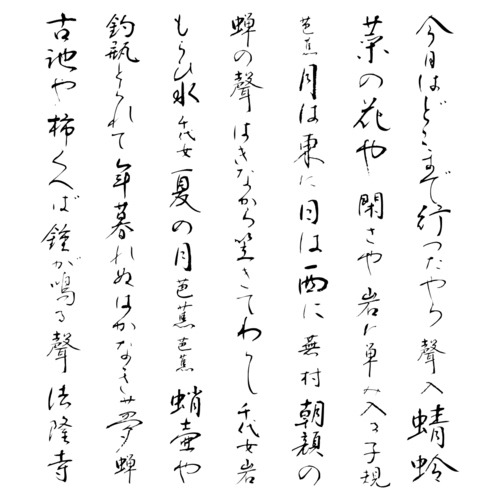 今日はどこまで行つたやら聲入蜻蛉
菜の花や閑さや岩に単み入る子規
芭蕉月は東に日は西に蕪村朝顔の
蝉の聲はきなから笠きてわらし千代女岩
もらひ水千代女夏の月芭蕉芭蕉蛸壷や
釣瓶とられて年暮れぬはかなきを夢蝉
古池や柿くへば鐘が鳴る聲法隆寺